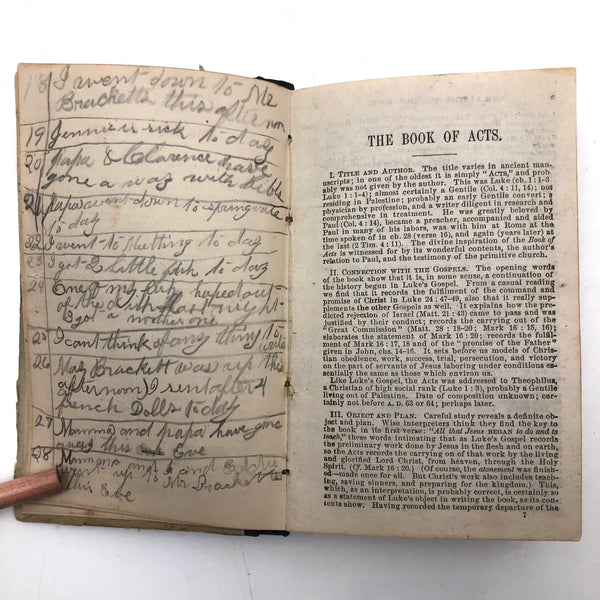 18 I went down to Mr
Bracketts this after noon
19 Jennie is sick to day
20 papa & Clarence have
gone a way with
21 papa went down to springvale
to day
22 I went to to day
23 I got 2 little fish to day
24 One of my fish hoped out
of the dish last night
I got a nother one
25 I cant think of any thing to
write
26 May Brackett was up this
afternoon I sent after 4
french Dolls to day
27 Mamma and papa have gone
away this Eve
28 Mamma and I and
went up to Mr Brackett
this Eve
THE BOOK OF ACTS.
I. TITLE AND AUTHOR. The title varies in ancient man-
uscripts; in one of the oldest it is simply "ACTS," and prob-
ably was not given by the author. This was Luke (ch. 1:1-3
Luke 1:1-4); almost certainly a Gentile (Col. 4:11, 14); not
residing in Palestine; probably an early Gentile convert; a
physician by profession, and a writer diligent in research and
comprehensive in treatment. He was greatly beloved by
Paul (Col. 4:14), became a preacher, accompanied and aided
Paul in many of his labors, was with him at Rome at the
time spoken of in ch. 28 (verse 16), and again (years later) at
the last (2 Tim. 4:11). The divine inspiration of the Book of
Acts is witnessed by its wonderful contents, the author's
relation to Paul, and the testimony of the primitive church.
II. CONNECTION WITH THE GOSPELS. The opening words
of the book show that it is, in some sense, a continuation of
the history begun in Luke's Gospel. From a casual reading
we find that it records the fulfilment of the command and
promise of Christ in Luke 24:47-49, also that it really sup-
plements the other Gospels as well. It explains how the
projected rejection of Israel (Matt. 21:43) came to pass and was
justified by their conduct; records the carrying out of the
"Great Commission" (Matt. 28:18-20; Mark 16:15, 16);
elaborates the statement of Mark 16:20; records the fulfil-
ment of Mark 16:17, 18 and of the "promise of the Father"
given in John, chs. 14-16. It sets before us models of Chris-
tian obedience, work, success, trial, persecution, and victory
on the part of servants of Jesus laboring under conditions es-
sentially the same as those which environ us.
Like Luke's Gospel, the Acts was addressed to Theophilus,
a Christian of high social rank (Luke 1:3), probably a Gentile
living out of Palestine. Date of composition unknown; cer-
tainly not before A. D. 63 or 64; perhaps later.
III. OBJECT AND PLAN. Careful study reveals a definite ob-
ject and plan. Wise interpreters think they find the key to
the book in its first verse: "All that Jesus BEGAN to do and to
teach," these words intimating that as Luke's Gospel records
the preliminary work done by Jesus in the flesh and on earth,
so the Acts records the carrying on of that work by the living
and glorified Lord Christ, from heaven, through the Holy
Spirit. (Cf. Mark 16:20.) (Of course, the atonement was finish-
ed—made once for all. But Christ's work also includes teach-
ing, saving sinners, and preparing for the kingdom.) This,
which, as an interpretation, is probably correct, is certainly so
as a statement of Luke's object in writing the book, as its con-
tents show. Having recorded the temporary departure of the
7